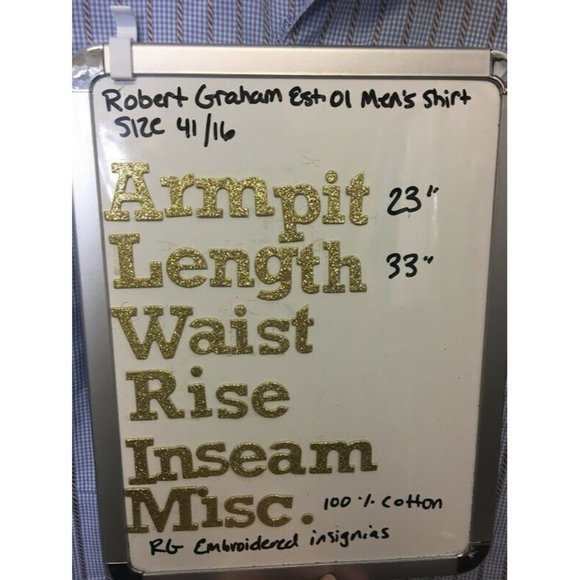 Robert Graham Est. 01 Men's Shirt
SIZE 41/16
Armpit 23"
Length 33"
Waist
Rise
Inseam
Misc. 100% Cotton
RG Embroidered insignias